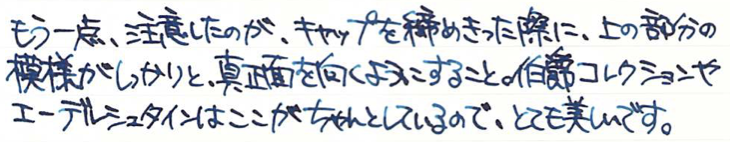 もう一点、注意したのが、キャップを締めきった際に、上の部分の
模様がしっかりと、真正面を向くようにすること。伯爵コレクションや
エーデルシュタインはここがちゃんとしているので、とても美しいです。